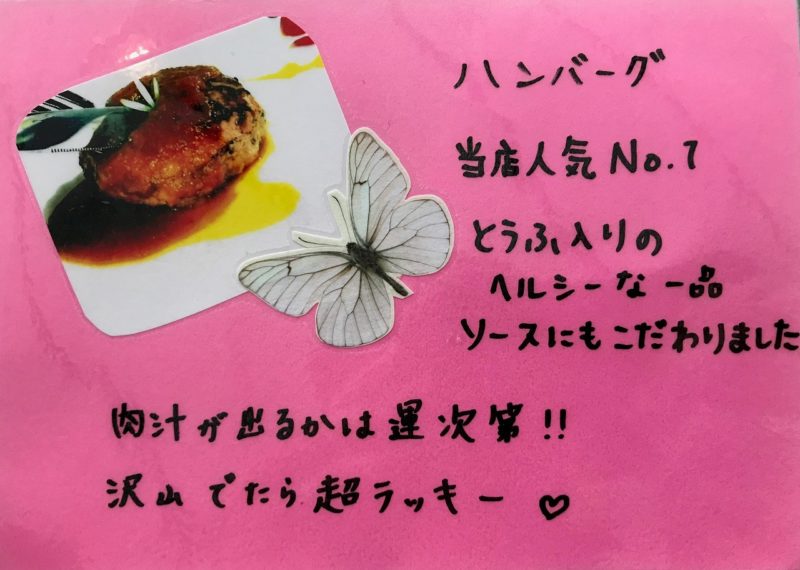 ハンバーグ
当店人気No.1
とうふ入りの
ヘルシーな一品
ソースにもこだわりました
肉汁が出るかは運次第!!
沢山でたら超ラッキー♡